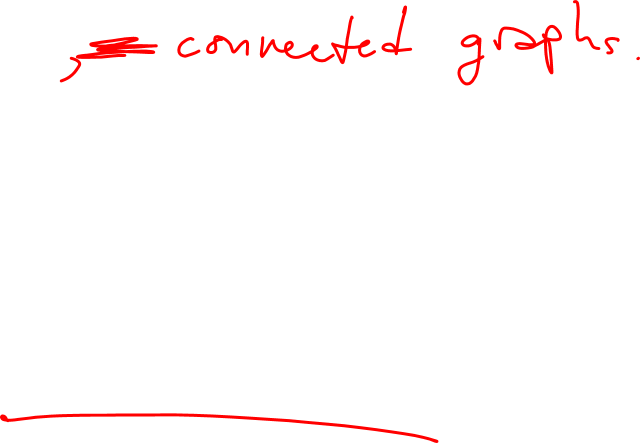 , connected graphs.